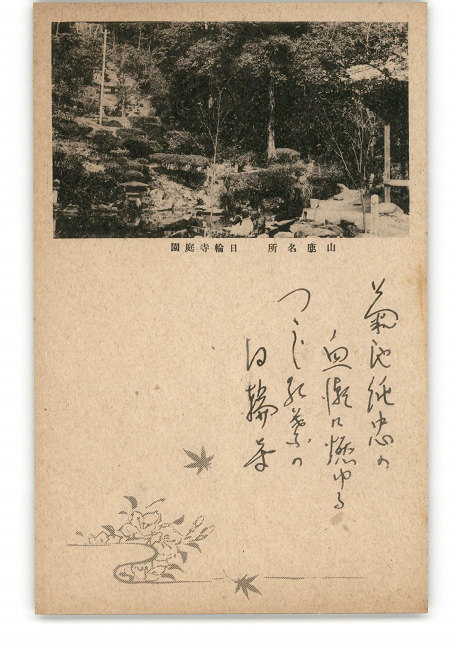 山鹿名所　日輪寺庭園
菊池純忠の
血潮に燃ゆる
つゝじ紅葉の
日輪寺